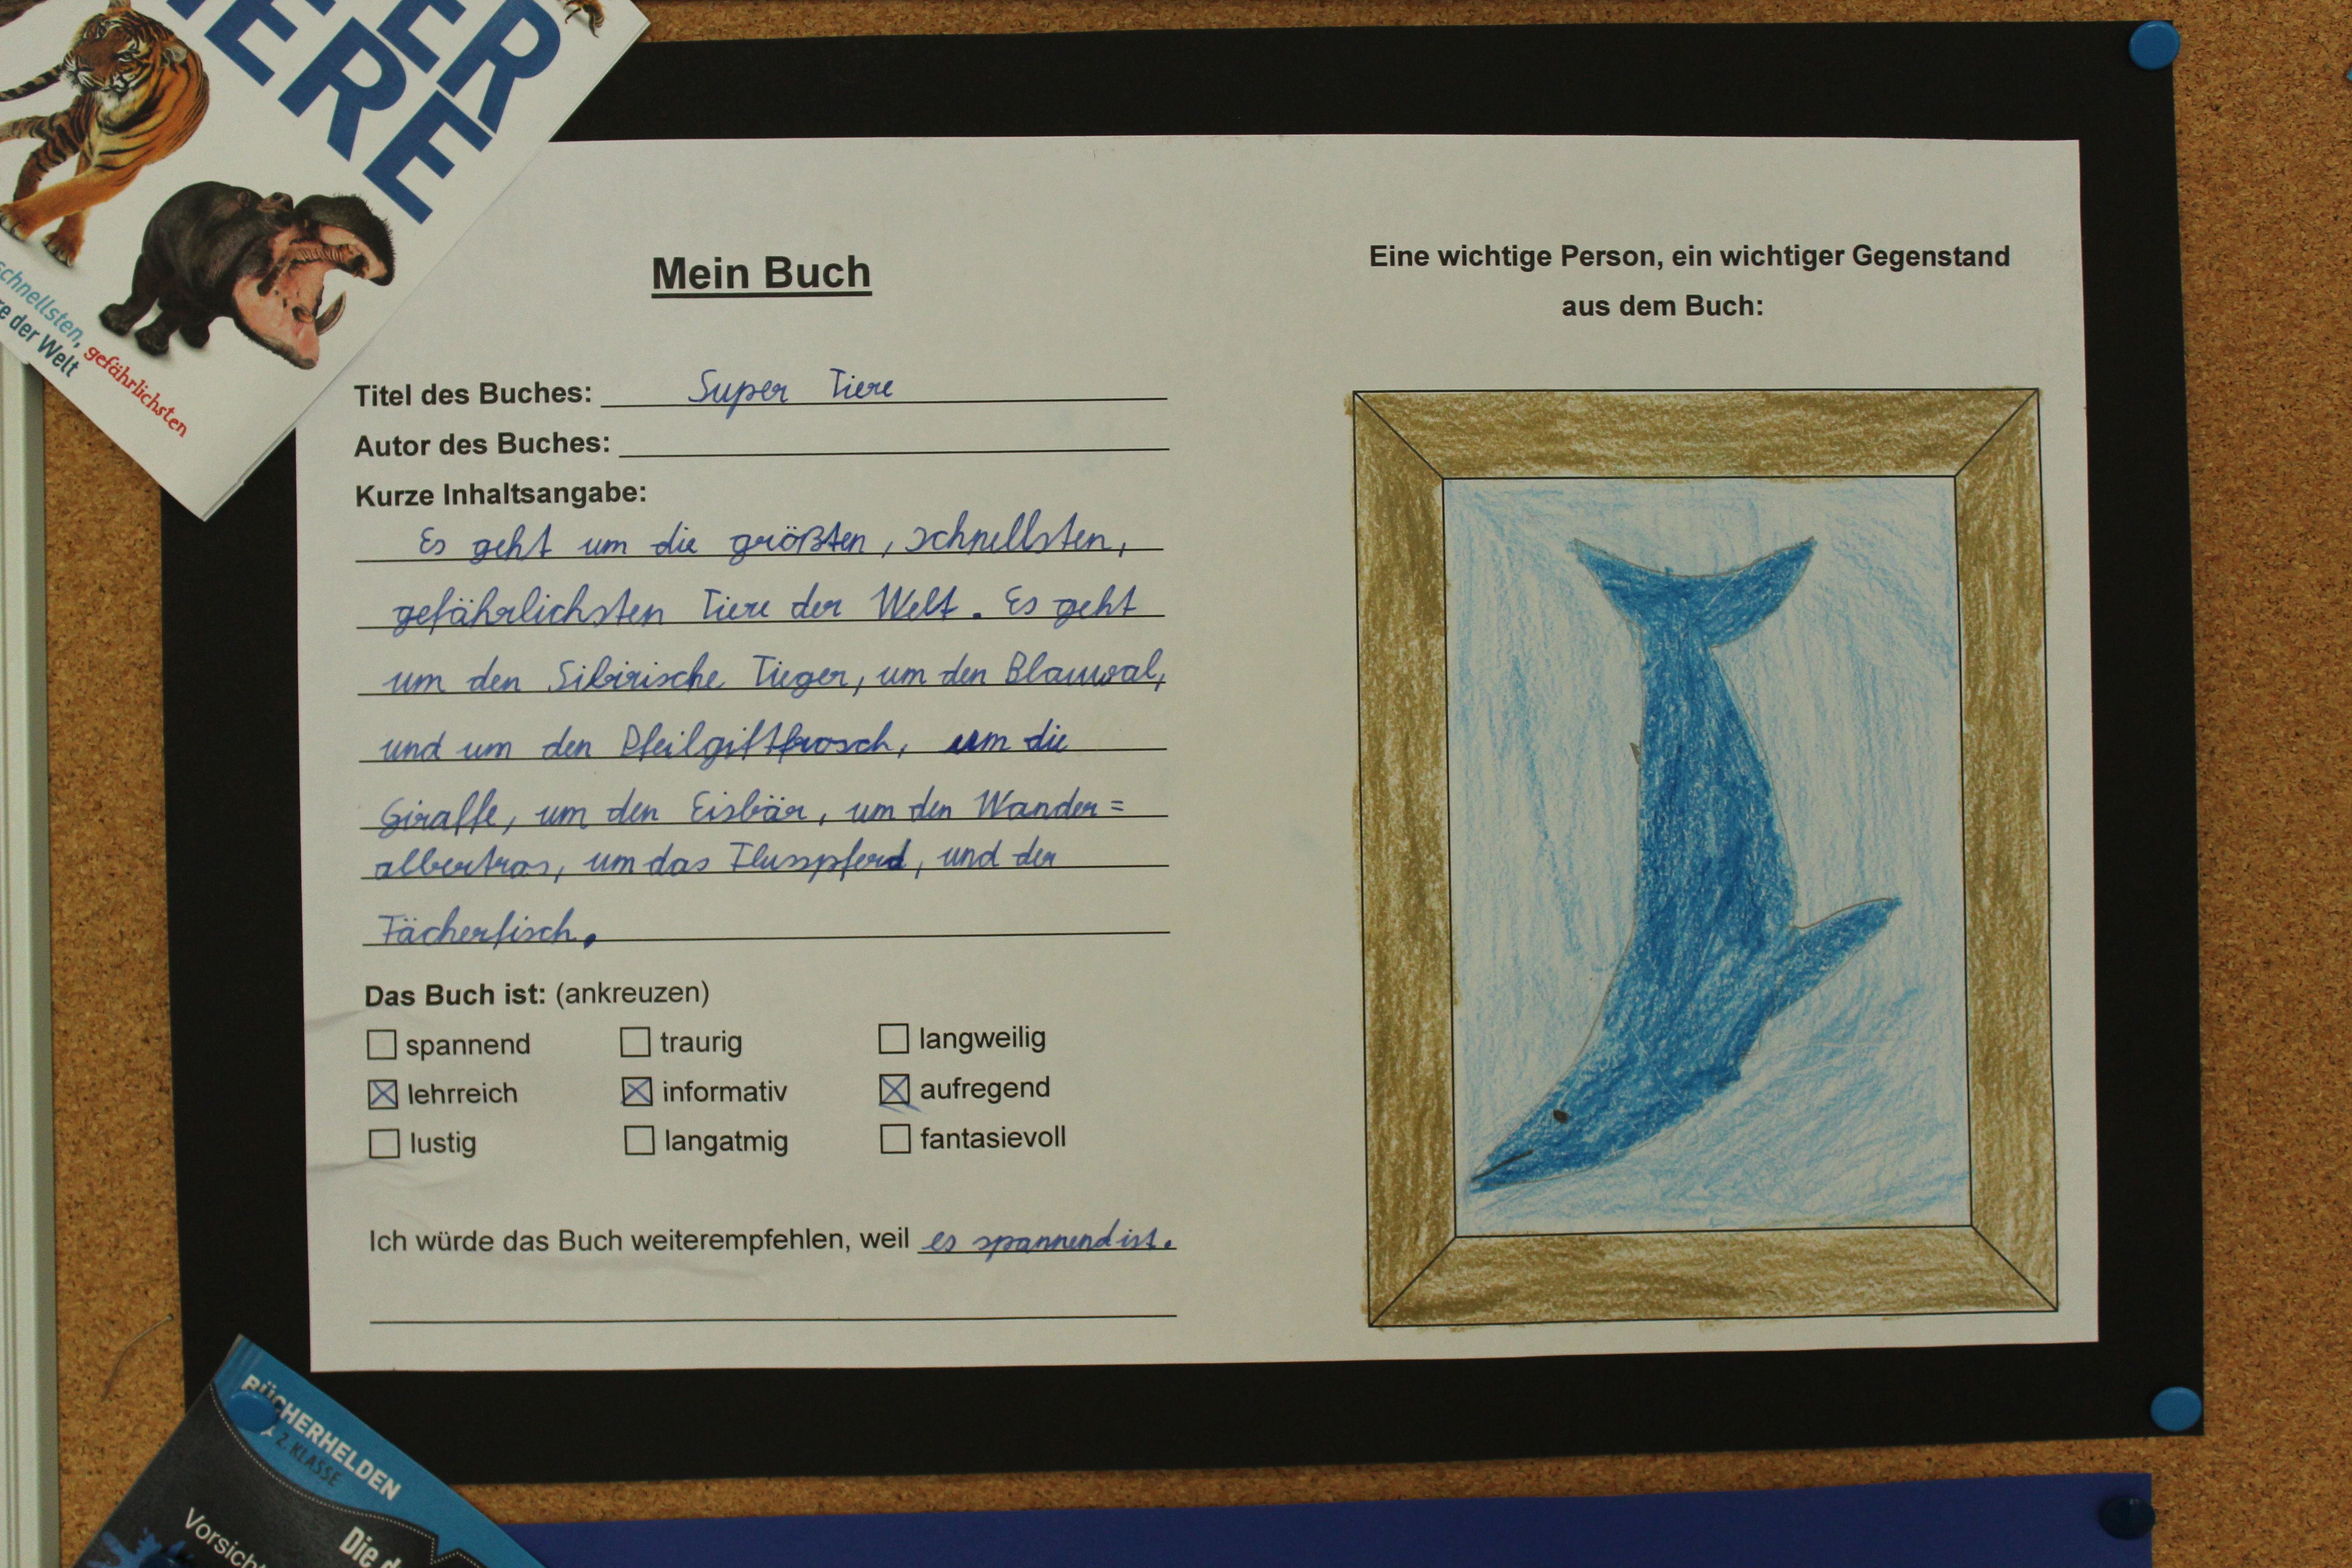 ER
IERE
schnellsten, gefährlichsten
re der Welt
Mein Buch
Titel des Buches: Super Tiere
Autor des Buches:
Kurze Inhaltsangabe:
Es geht um die größten, schnellsten,
gefährlichsten Tiere der Welt. Es geht
um den Sibirische Tieger, um den Blauwal,
und um den Pfeilgiftfrosch, um die
Giraffe, um den Eisbär, um den Wander=
albertros, um das Flusspferd, und der
Fächerfisch.
Das Buch ist: (ankreuzen)
spannend traurig langweilig
lehrreich informativ aufregend
lustig langatmig fantasievoll
Ich würde das Buch weiterempfehlen, weil es spannend ist.
Eine wichtige Person, ein wichtiger Gegenstand
aus dem Buch:
BÜCHERHELDEN
2. KLASSE
Vorsicht
Die